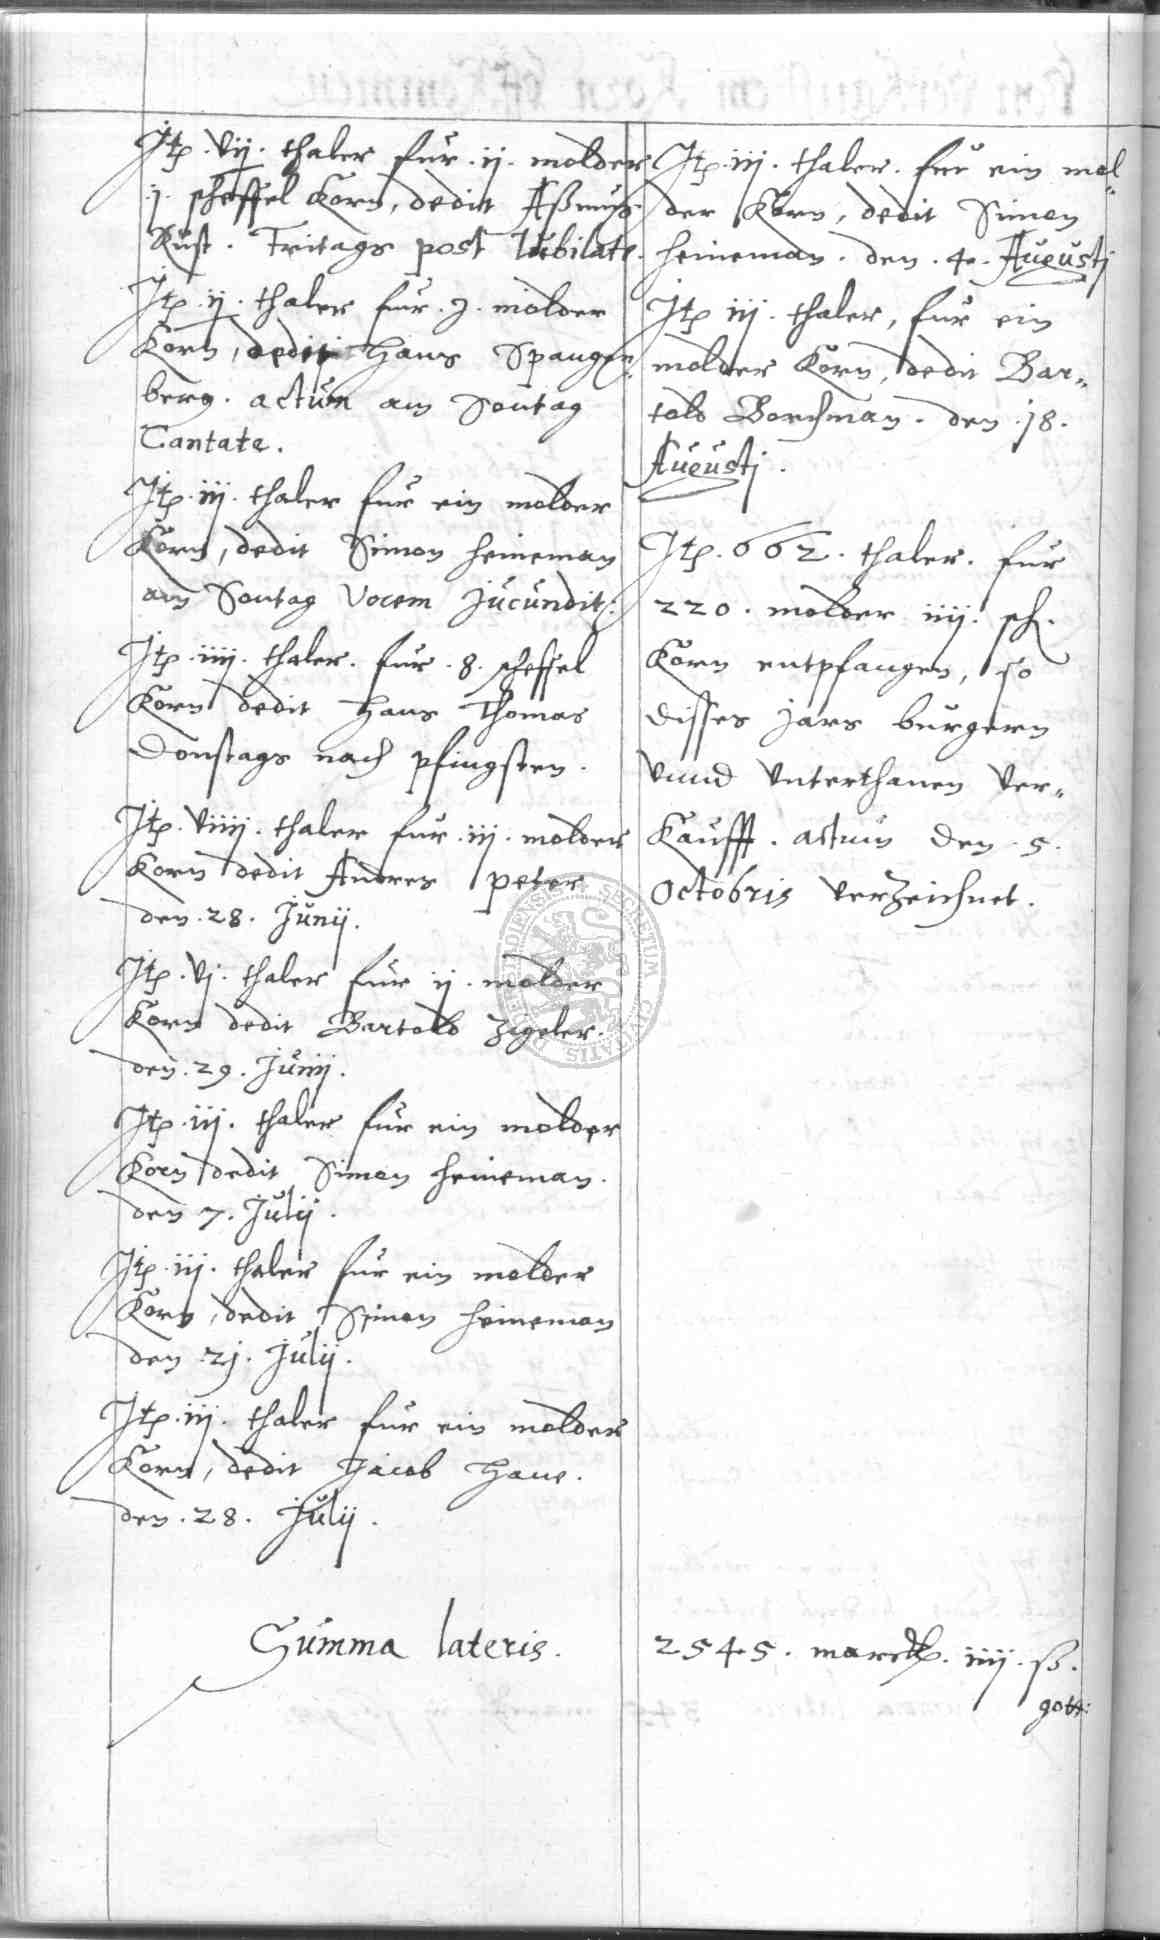 Jtp. vij. thaler fur .ij. molder
.j. scheffel Korn, dedit Aßmus
Kust. Fritags post Jubilate.
Jtp. ij. thaler fur .j. molder
Korn, dedit Hans Spangen„
berg. actum am Sontag
Cantate.
Jtp. iij. thaler fur ein molder
Korn, dedit Simon Heineman
am Sontag Vocem Jucundit:
Jtp. iiij. thaler. fur .8. scheffel
Korn dedit Hans Thomas
Donstags nach pfingsten.
Jtp. viiij. thaler fur .iij. molder
Korn dedit Andres peter
den .28. Junij.
Jtp. vj. thaler fur ij. molder
Korn dedit Bartold Zigeler.
den .29. Junij.
Jtp. iij. thaler fur ein molder
Korn dedit Simon Heineman.
den 7. Julij.
Jtp. iij. thaler fur ein molder
Korn, dedit Simon Heineman
den .21. Julij.
Jtp. iij. thaler fur ein molder
Korn, dedit Jacob Haue.
den .28. Julij.
Summa lateris.
Jtp. iij. thaler. fur ein mol„
der Korn, dedit Simon
Heineman. den .4. Augustj
Jtp iij. thaler, fur ein
molder Korn, dedit Bar„
told Borchman. den .18.
Augustj.
Jtp. 662. thaler. fur
220. molder iiij. sch.
Korn entpfangen, so
disses jars burgern
vnnd vnterthanen ver„
Kaufft. actum den .5.
Octobris verzeichnet.
2545. marck. iiij. ß.
gott: